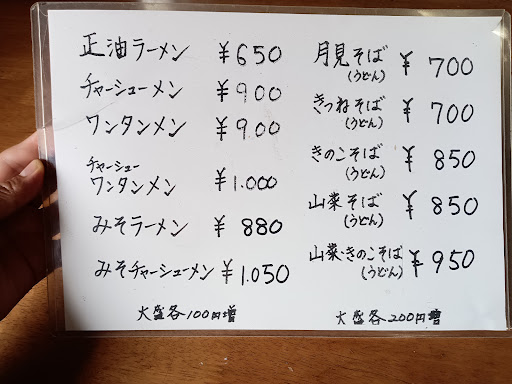 正油ラーメン ¥650
チャーシューメン ¥900
ワンタンメン ¥900
チャーシュー
ワンタンメン ¥1.000
みそラーメン ¥880
みそチャーシューメン ¥1.050
大盛各100円増
月見そば ¥700
(うどん)
きつねそば ¥700
(うどん)
きのこそば ¥850
(うどん)
山菜そば ¥850
(うどん)
山菜・きのこそば ¥950
(うどん)
大盛各200円増